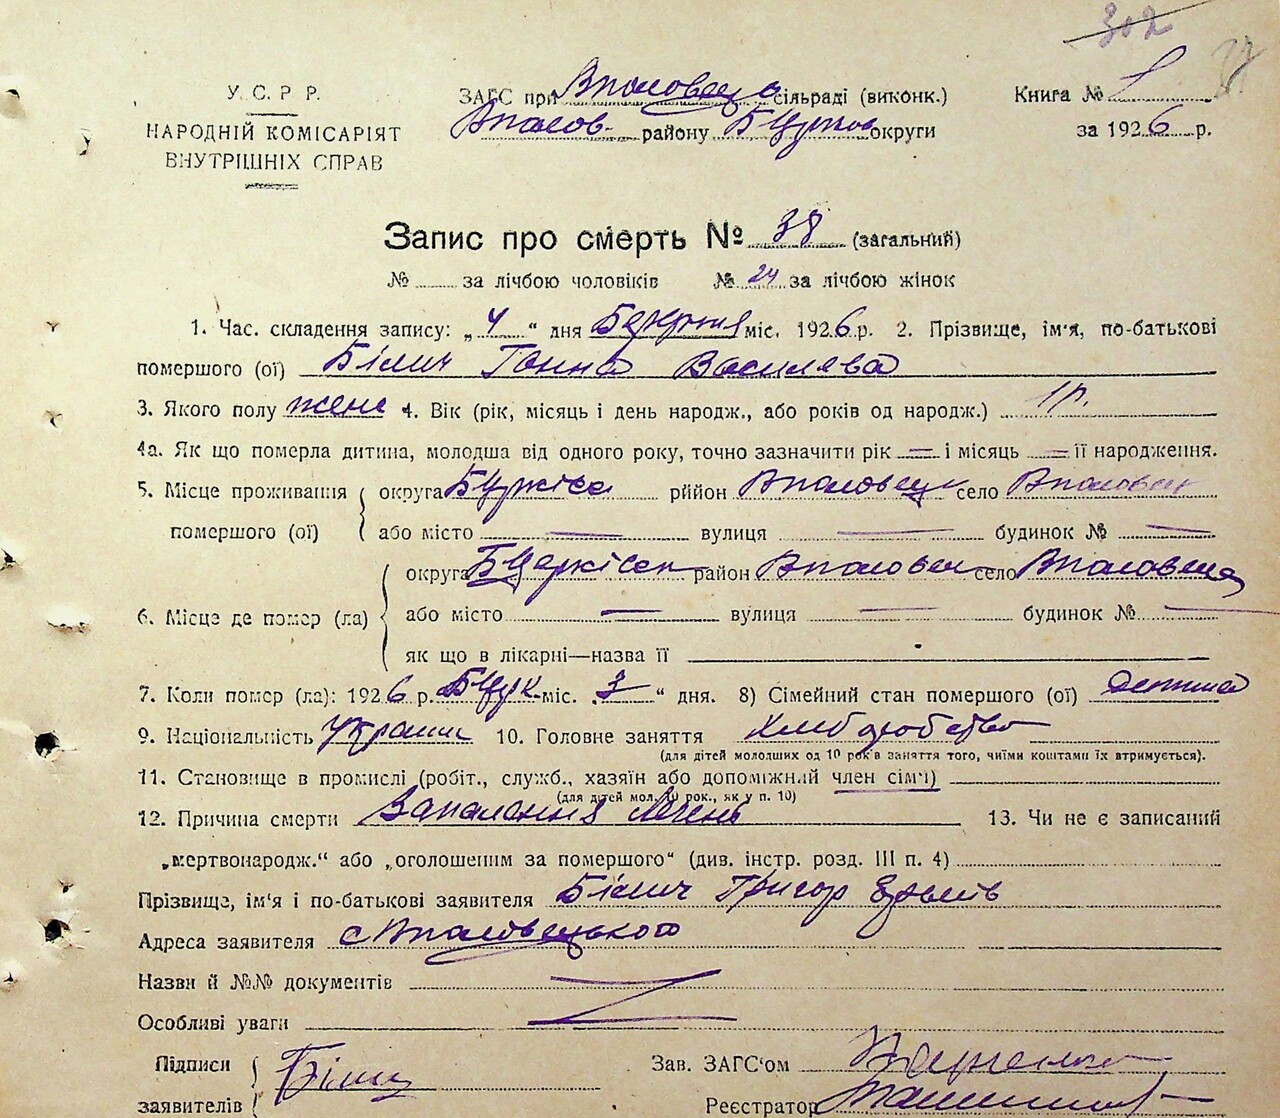 302
У. С. Р. Р.
НАРОДНІЙ КОМІСАРІЯТ
ВНУТРІШНІХ СПРАВ
ЗАГС при сільраді (виконк.)
району округи
Книга №
за 1926 р.
Запис про смерть № 38 (загальний)
№ за лічбою чоловіків № 24 за лічбою жінок
1. Час. складення запису: „4“ дня Березня міс. 1926 р. 2. Прізвище, ім'я, по-батькові
помершого (ої) Білич Ганна Василева
3. Якого полу жено 4. Вік (рік, місяць і день народж., або років од народж.) 1 р.
4а. Як що померла дитина, молодша від одного року, точно зазначити рік — і місяць — її народження.
5. Місце проживання округа район село
помершого (ої) або місто — вулиця — будинок № —
6. Місце де помер (ла) округа Бцерківск район село
або місто — вулиця — будинок № —
як що в лікарні—назва її
7. Коли помер (ла): 1926 р. міс. 3 “ дня. 8) Сімейний стан помершого (ої) дитина
9. Національність україн 10. Головне заняття хліборобство
(для дітей молодших од 10 рок'в заняття того, чиїми коштами їх втримується).
11. Становище в промислі (робіт., служб., хазяїн або допоміжний член сім'ї)
(для дітей мол. 10 рок., як у п. 10)
12. Причина смерти Запалення легень 13. Чи не є записаний
„мертвонародж.“ або „оголошеним за помершого“ (див. інстр. розд. III п. 4)
Прізвище, ім'я і по-батькові заявителя Білич Григор
Адреса заявителя
Назви й №№ документів
Особливі уваги
Підписи Біли Зав. ЗАГС'ом
заявителів Реєстратор